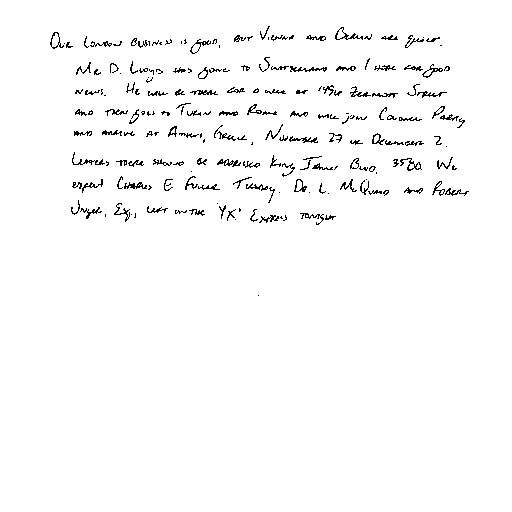 Our London business is good, but Vienna and Berlin are quiet.
Mr. D. Lloyd has gone to Switzerland and I hope for good
news. He will be there for a week at 1496 Zermott Street
and then goes to Turin and Rome and will join Colonel Parry
and arrive at Athens, Greece, November 27 or December 2.
Letters there should be addressed King James Blvd. 3580. We
expect Charles E. Fuller Tuesday. Dr. L. McQuaid and Robert
Unger, Esq., left on the 'Y.X.' Express tonight